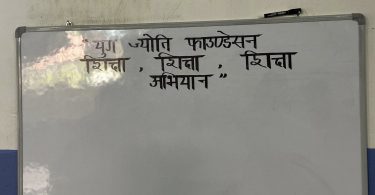 "युग ज्योति फाउण्डेसन
शिक्षा , शिक्षा , शिक्षा
अभियान"